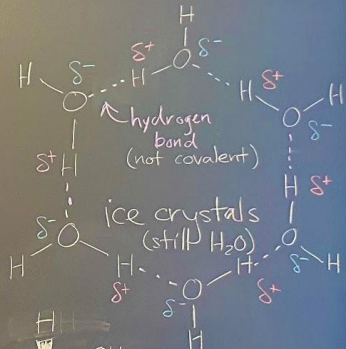 H
δ+ δ-
H δ- H O H δ+ H
O O
hydrogen δ-
bond
H (not covalent)
δ+ H H δ+
ice crystals
δ- O (still H₂O) O
H H H δ- H
δ+ O δ+
δ-
H
H H